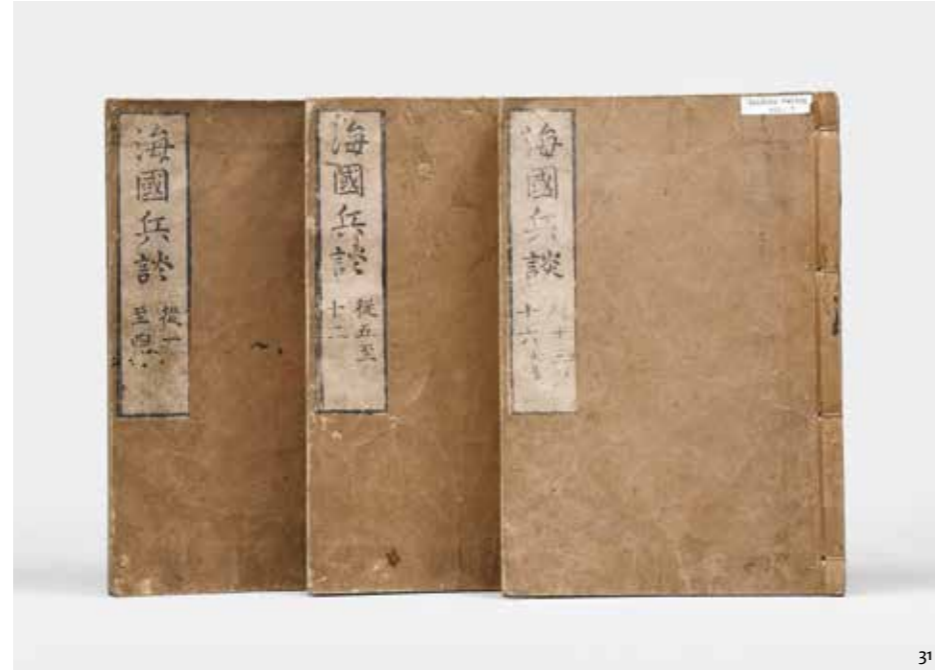 海國兵談
從一
至四
海國兵談
從五至
十二
海國兵談
十六
31